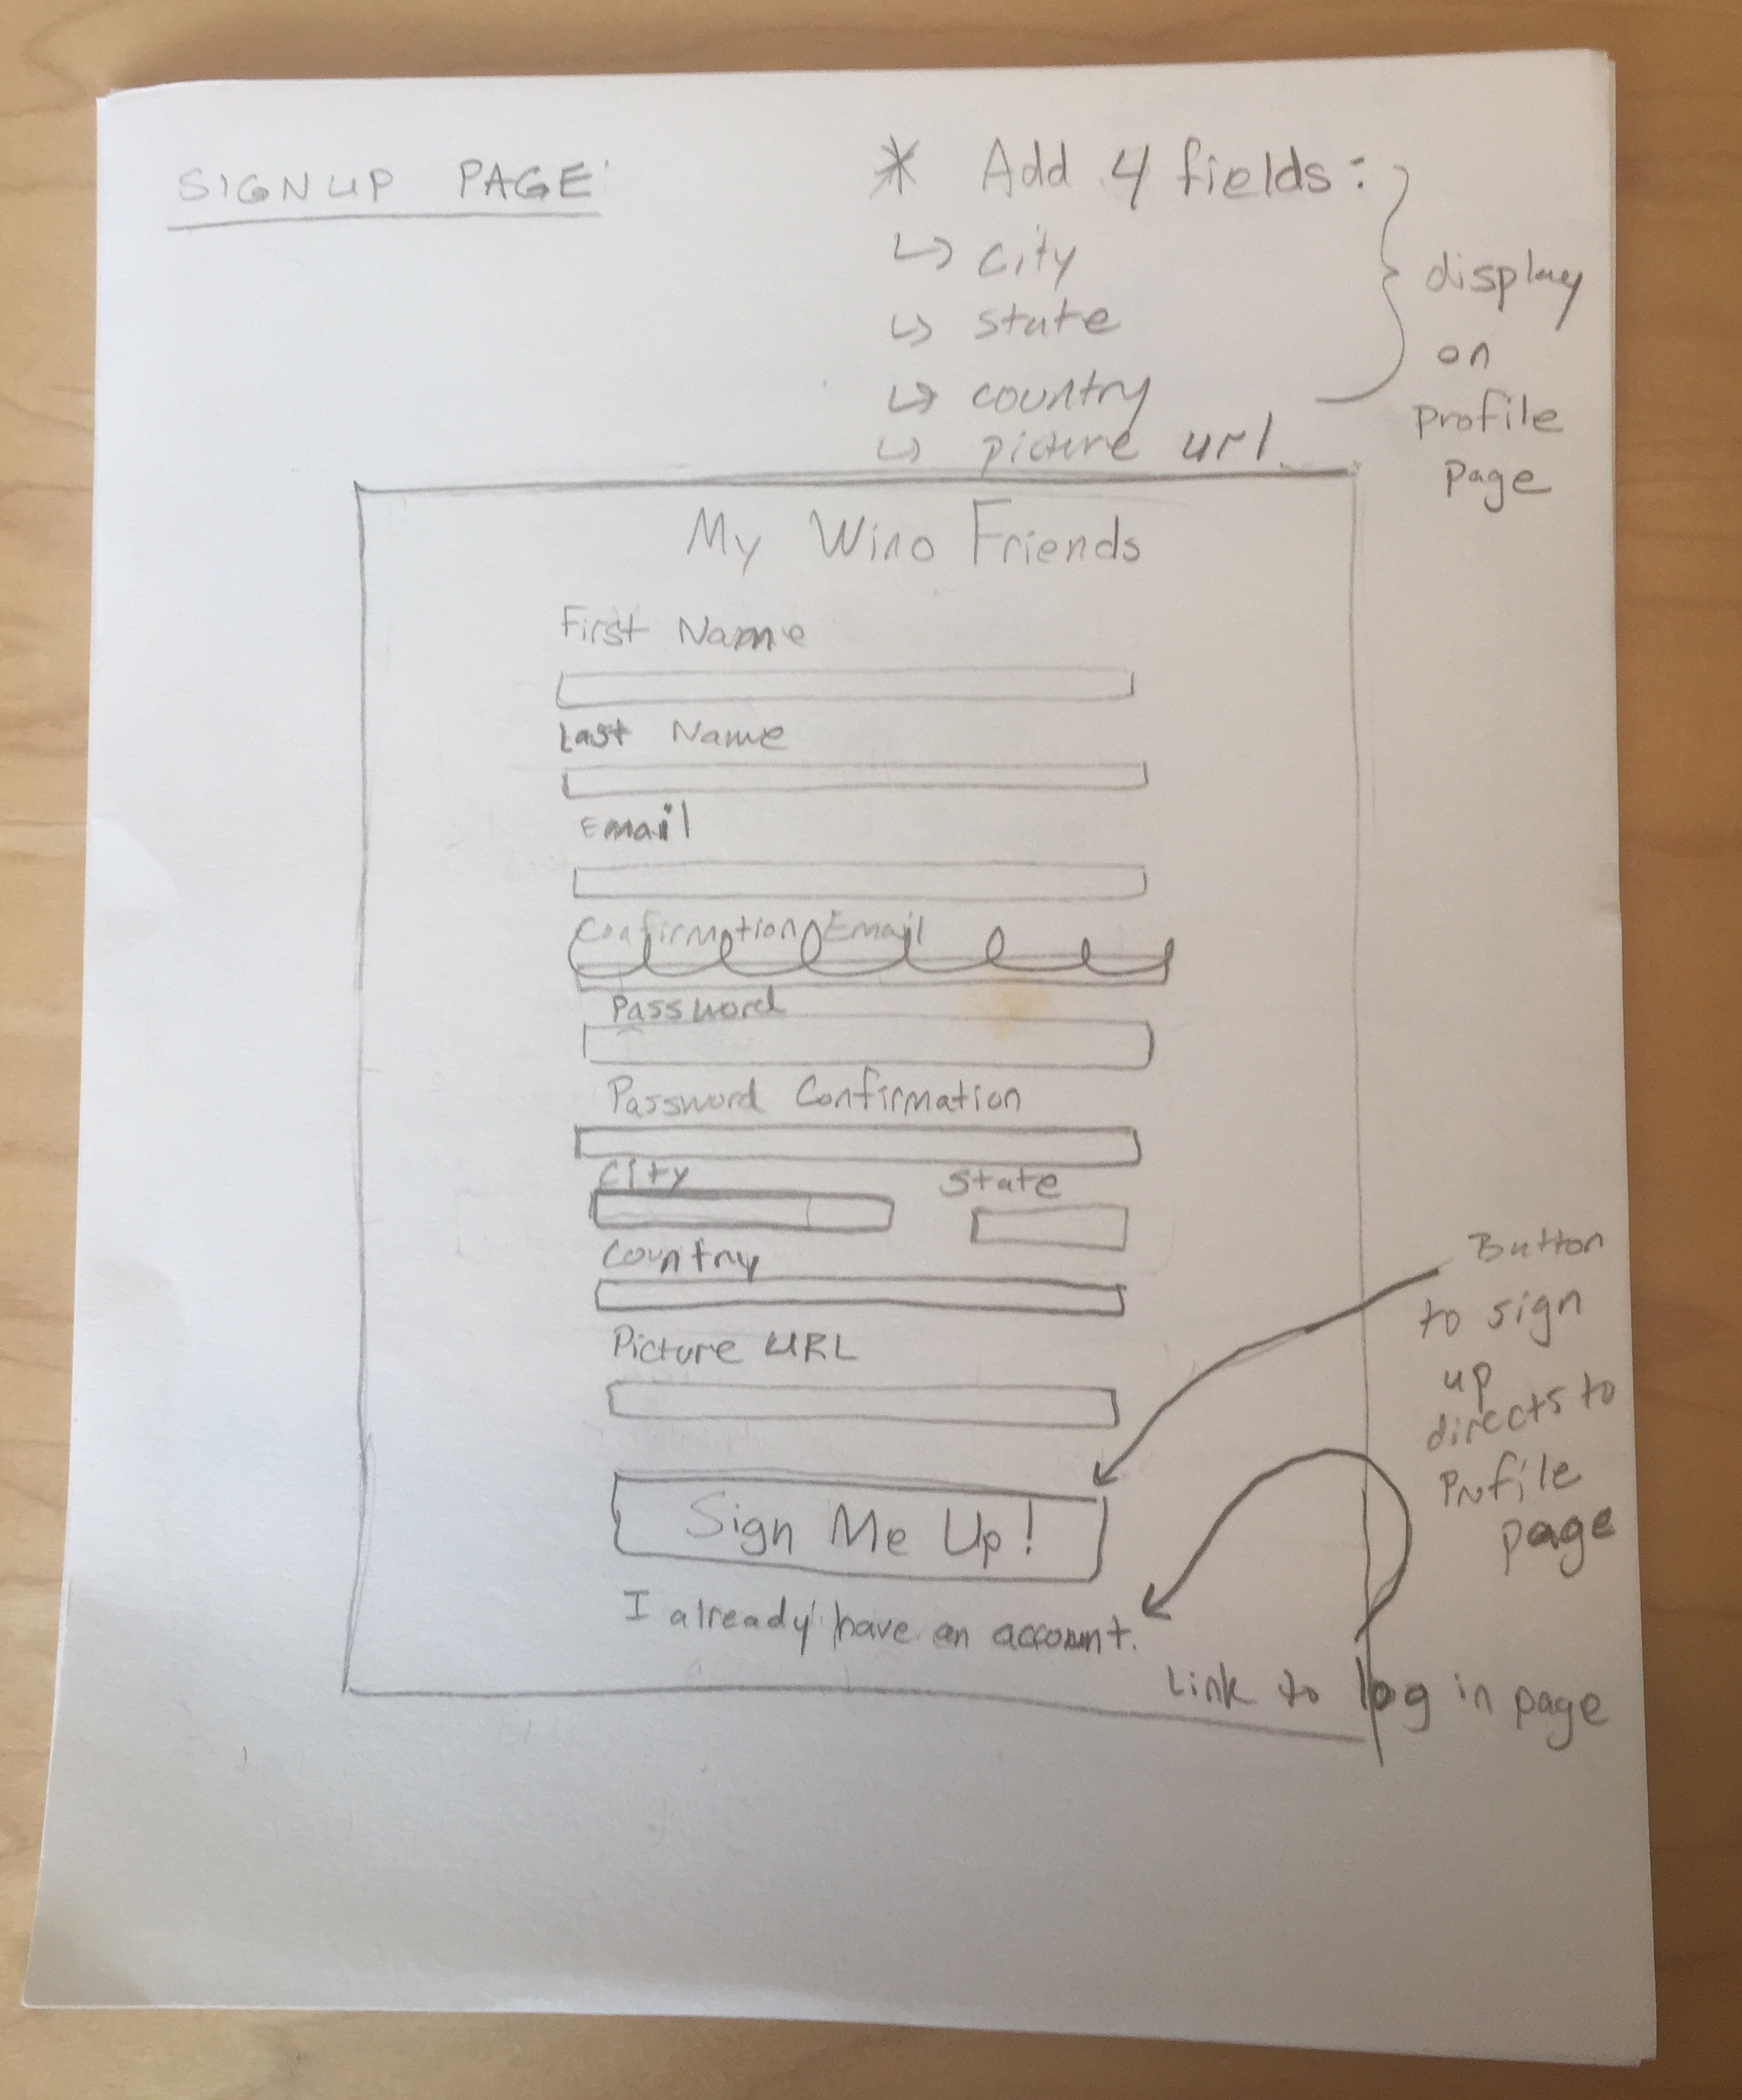 SIGNUP PAGE
* Add 4 fields:
↳ city
↳ state
↳ country
↳ picture url
display
on
Profile
Page
My Wino Friends
First Name
Last Name
Email
Confirmation Email
Password
Password Confirmation
City State
Country
Picture URL
Sign Me Up!
I already have an account.
Button
to sign
up
directs to
Profile
page
Link to log in page